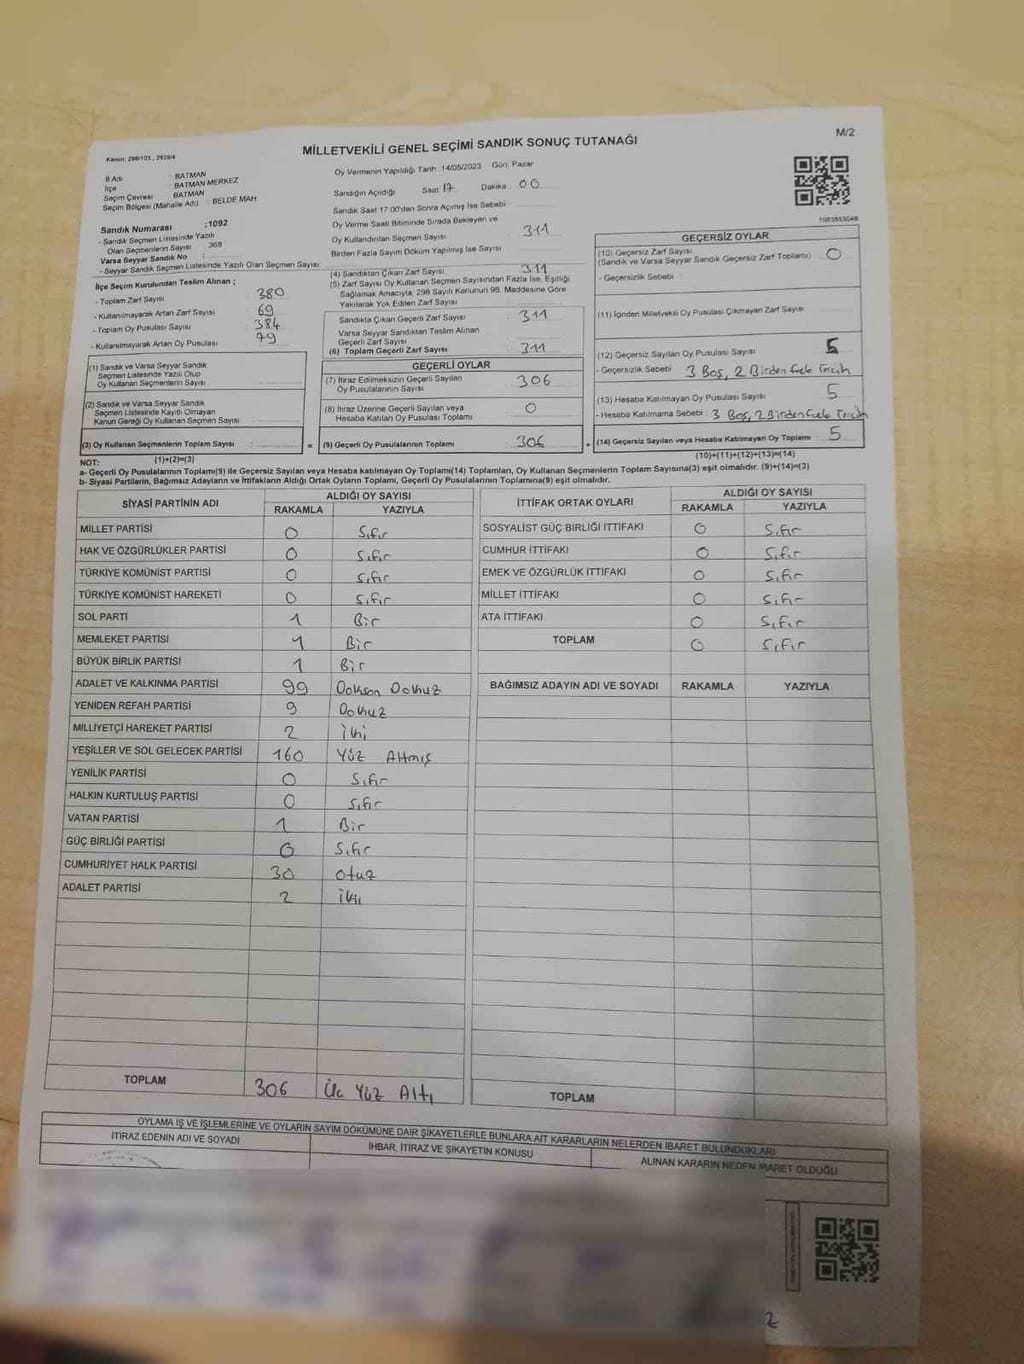 M/2
Kanun: 298/105 , 2839/4
MİLLETVEKİLİ GENEL SEÇİMİ SANDIK SONUÇ TUTANAĞI
İl Adı : BATMAN
İlçe : BATMAN MERKEZ
Seçim Çevresi : BATMAN
Seçim Bölgesi (Mahalle Adı) : BELDE MAH.
Sandık Numarası :1092
- Sandık Seçmen Listesinde Yazılı
Olan Seçmenlerin Sayısı : 368
Varsa Seyyar Sandık No :
- Seyyar Sandık Seçmen Listesinde Yazılı Olan Seçmen Sayısı :
İlçe Seçim Kurulundan Teslim Alınan ;
- Toplam Zarf Sayısı : 380
- Kullanılmayarak Artan Zarf Sayısı : 69
- Toplam Oy Pusulası Sayısı : 384
- Kullanılmayarak Artan Oy Pusulası :
(1) Sandık ve Varsa Seyyar Sandık
Seçmen Listesinde Yazılı Olup
Oy Kullanan Seçmenlerin Sayısı :
(2) Sandık ve Varsa Seyyar Sandık
Seçmen Listesinde Kayıtlı Olmayan
Kanun Gereği Oy Kullanan Seçmen Sayısı :
(3) Oy Kullanan Seçmenlerin Toplam Sayısı :
(1)+(2)=(3)
Oy Vermenin Yapıldığı Tarih :14/05/2023 Gün: Pazar
Sandığın Açıldığı Saat: 17 Dakika : 00
Sandık Saat 17:00'den Sonra Açılmış İse Sebebi
Oy Verme Saati Bitiminde Sırada Bekleyen ve
Oy Kullandırılan Seçmen Sayısı : 311
Birden Fazla Sayım Döküm Yapılmış İse Sayısı :
(4) Sandıktan Çıkan Zarf Sayısı : 311
(5) Zarf Sayısı Oy Kullanan Seçmen Sayısından Fazla İse, Eşitliği
Sağlamak Amacıyla, 298 Sayılı Kanunun 98. Maddesine Göre
Yakılarak Yok Edilen Zarf Sayısı :
Sandıkta Çıkan Geçerli Zarf Sayısı : 311
Varsa Seyyar Sandıktan Teslim Alınan
Geçerli Zarf Sayısı :
(6) Toplam Geçerli Zarf Sayısı : 311
GEÇERLİ OYLAR
(7) İtiraz Edilmeksizin Geçerli Sayılan
Oy Pusulalarının Sayısı : 306
(8) İtiraz Üzerine Geçerli Sayılan veya
Hesaba Katılan Oy Pusulası Toplamı : 0
= (9) Geçerli Oy Pusulalarının Toplamı : 306
GEÇERSİZ OYLAR
(10) Geçersiz Zarf Sayısı
(Sandık ve Varsa Seyyar Sandık Geçersiz Zarf Toplamı) : 0
- Geçersizlik Sebebi :
(11) İçinden Milletvekili Oy Pusulası Çıkmayan Zarf Sayısı :
(12) Geçersiz Sayılan Oy Pusulası Sayısı : 5
- Geçersizlik Sebebi : 3 Boş, 2 Birden fazla tercih
(13) Hesaba Katılmayan Oy Pusulası Sayısı : 5
- Hesaba Katılmama Sebebi : 3 Boş, 2 Birden fazla Tercih
+ (14) Geçersiz Sayılan veya Hesaba Katılmayan Oy Toplamı : 5
(10)+(11)+(12)+(13)=(14)
NOT:
a- Geçerli Oy Pusulalarının Toplamı(9) ile Geçersiz Sayılan veya Hesaba katılmayan Oy Toplamı(14) Toplamları, Oy Kullanan Seçmenlerin Toplam Sayısına(3) eşit olmalıdır. (9)+(14)=(3)
b- Siyasi Partilerin, Bağımsız Adayların ve İttifakların Aldığı Ortak Oyların Toplamı, Geçerli Oy Pusulalarının Toplamına(9) eşit olmalıdır.
SİYASİ PARTİNİN ADI ALDIĞI OY SAYISI
RAKAMLA YAZIYLA
MİLLET PARTİSİ 0 Sıfır
HAK VE ÖZGÜRLÜKLER PARTİSİ 0 Sıfır
TÜRKİYE KOMÜNİST PARTİSİ 0 Sıfır
TÜRKİYE KOMÜNİST HAREKETİ 0 Sıfır
SOL PARTİ 1 Bir
MEMLEKET PARTİSİ 1 Bir
BÜYÜK BİRLİK PARTİSİ 1 Bir
ADALET VE KALKINMA PARTİSİ 99 Doksan Dokuz
YENİDEN REFAH PARTİSİ 9 Dokuz
MİLLİYETÇİ HAREKET PARTİSİ 2 iki
YEŞİLLER VE SOL GELECEK PARTİSİ 160 Yüz Altmış
YENİLİK PARTİSİ 0 Sıfır
HALKIN KURTULUŞ PARTİSİ 0 Sıfır
VATAN PARTİSİ 1 Bir
GÜÇ BİRLİĞİ PARTİSİ 0 Sıfır
CUMHURİYET HALK PARTİSİ 30 otuz
ADALET PARTİSİ 2 iki
TOPLAM 306 Üç Yüz Altı
İTTİFAK ORTAK OYLARI ALDIĞI OY SAYISI
RAKAMLA YAZIYLA
SOSYALİST GÜÇ BİRLİĞİ İTTİFAKI 0 Sıfır
CUMHUR İTTİFAKI 0 Sıfır
EMEK VE ÖZGÜRLÜK İTTİFAKI 0 Sıfır
MİLLET İTTİFAKI 0 Sıfır
ATA İTTİFAKI 0 Sıfır
TOPLAM 0 Sıfır
BAĞIMSIZ ADAYIN ADI VE SOYADI RAKAMLA YAZIYLA
TOPLAM
OYLAMA İŞ VE İŞLEMLERİNE VE OYLARIN SAYIM DÖKÜMÜNE DAİR ŞİKAYETLERLE BUNLARA AİT KARARLARIN NELERDEN İBARET BULUNDUKLARI
İTİRAZ EDENİN ADI VE SOYADI İHBAR, İTİRAZ VE ŞİKAYETİN KONUSU ALINAN KARARIN NEDEN İBARET OLDUĞU